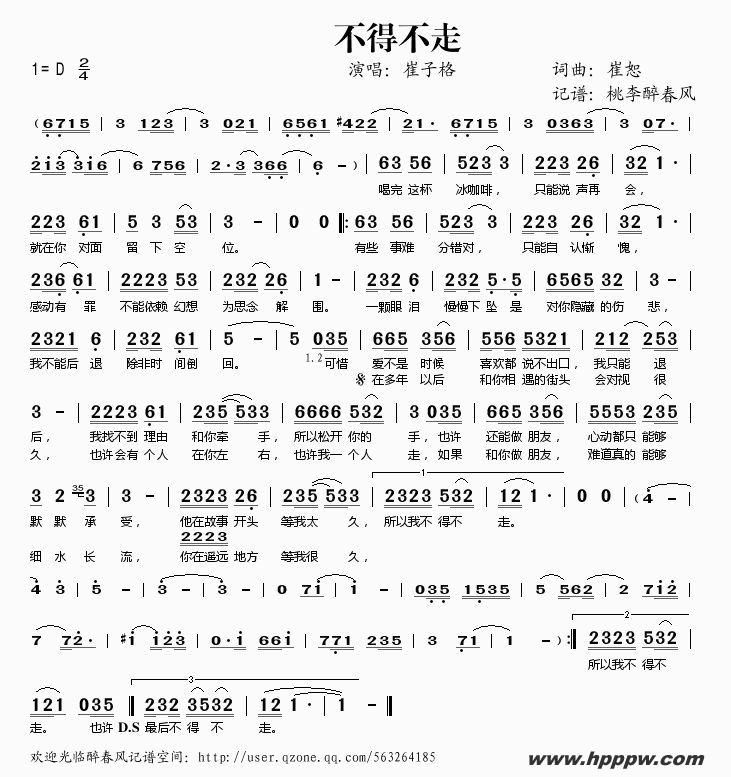 不得不走
1=D 2/4 演唱：崔子格 词曲：崔恕
记谱：桃李醉春风
( 6715 | 3 123 | 3 021 | 6561 #422 | 21· 6715 | 3 0363 | 3 07· |
213 316 | 6 756 | 2·3 366 | 6 - ) | 63 56 | 523 3 | 223 26 | 32 1· |
喝完 这杯 冰咖啡， 只能说 声再 会，
223 61 | 5 3 53 | 3 - | 0 0 ‖: 63 56 | 523 3 | 223 26 | 32 1· |
就在你 对面 留 下 空 位。 有些 事难 分错对， 只能自 认惭 愧，
236 61 | 2223 53 | 232 26 | 1 - | 232 6 | 232 5·5 | 6565 32 | 3 - |
感动有 罪 不能依赖 幻想 为思念 解 围。 一颗眼 泪 慢慢下 坠 是 对你隐藏 的伤 悲，
2321 6 | 232 61 | 5 - | 5 035 | 665 356 | 556 5321 | 212 253 |
我不能后 退 除非时 间倒 回。 1.2 可惜 爱不是 时候 喜欢都 说不出口， 我只能 退
在多年 以后 和你相 遇的街头 会对视 很
3 - | 2223 61 | 235 533 | 6666 532 | 3 035 | 665 356 | 5553 235 |
后， 我找不到 理由 和你牵 手， 所以松开 你的 手， 也许 还能做 朋友， 心动都只 能够
久， 也许会有 个人 在你左 右， 也许我一 个人 走， 如果 和你做 朋友， 难道真的 能够
3 2 35 3 | 3 - | 2323 26 | 235 533 | 1 2323 532 | 12 1· | 0 0 | (4 -
默 默 承 受， 他在故事 开头 等我太 久， 所以我不 得不 走。
2223
细 水 长 流， 你在遥远 地方 等我很 久，
4 3 | 5 - | 3 - | 3 - | 0 71 | 1 - | 035 1535 | 5 562 | 2 712 |
7 72· | #1 123 | 0·1 661 | 771 235 | 3 71 | 1 - ) :‖ 2 2323 532 |
所以我不 得不
121 035 ‖ 3 232 3532 | 12 1· | 1 - ‖
走。 也许 D.S 最后不 得 不 走。
欢迎光临醉春风记谱空间：http://user.qzone.qq.com/563264185
www.hpppw.com